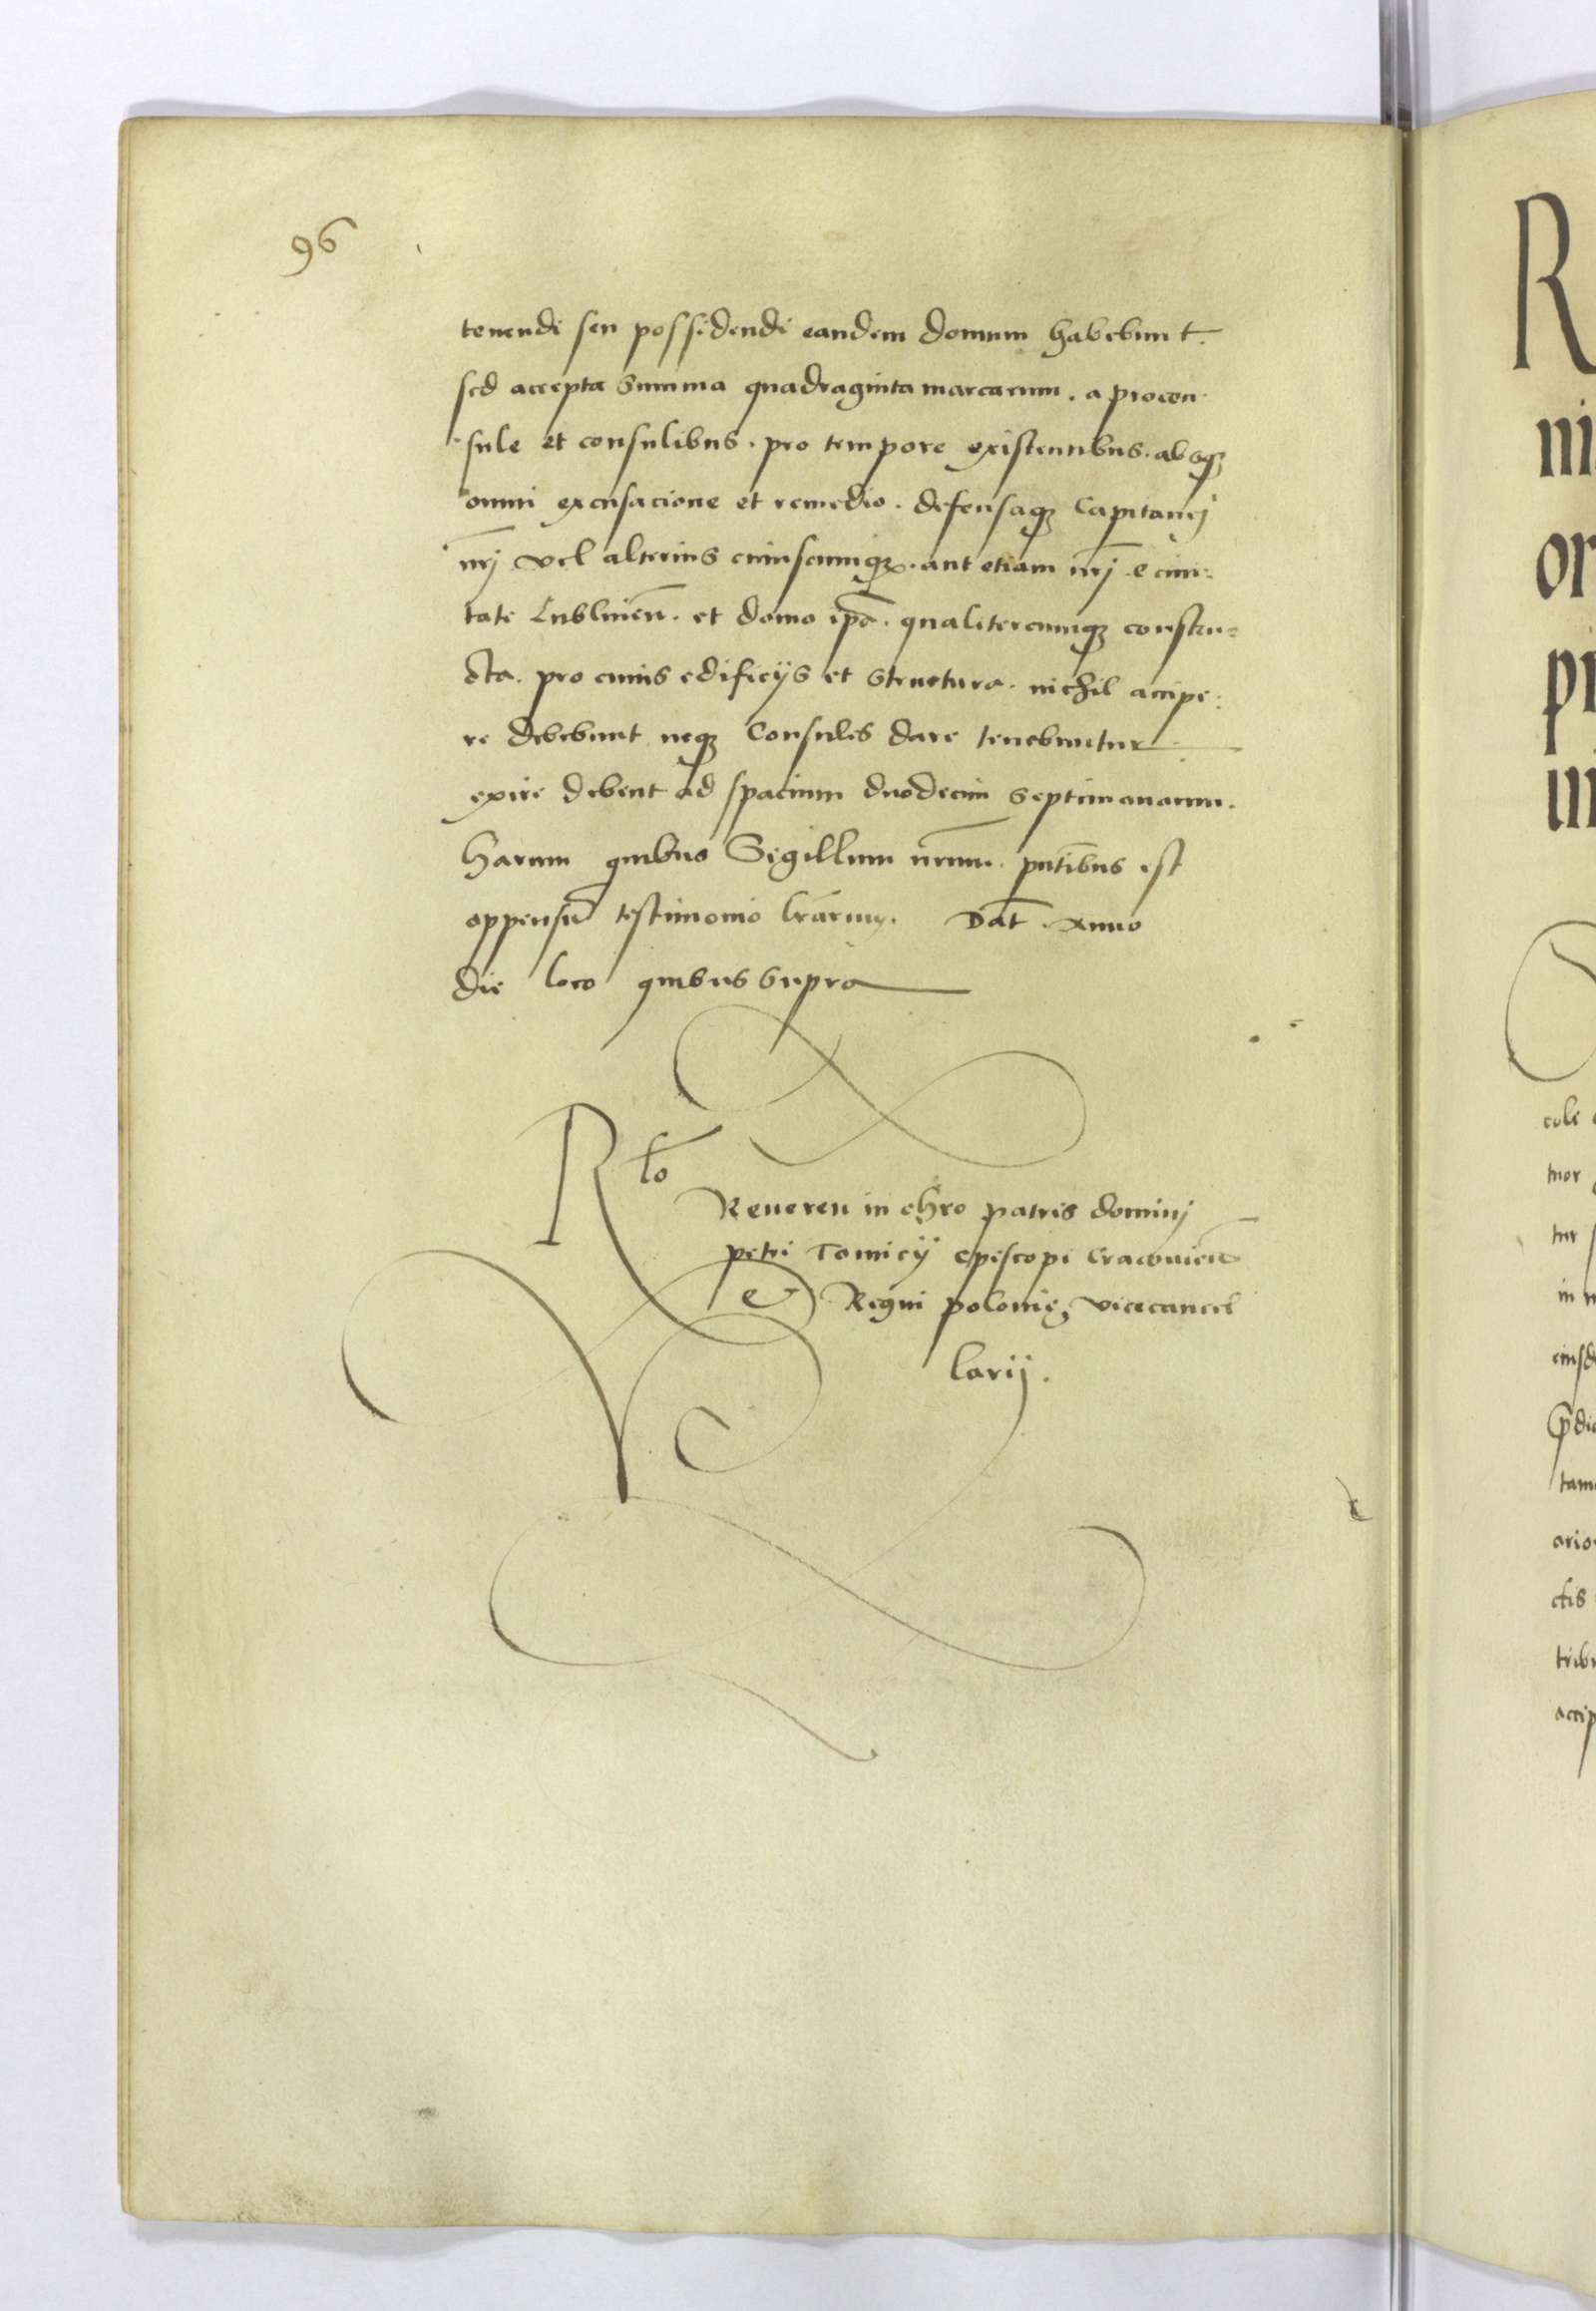 96
tenendi seu possidendi eandem domum habebunt.
sed accepta summa quadraginta marcarum. a procon-
sule et consulibus. pro tempore existentibus. absq3
omni excusacione et remedio. defensaq3 Capitanej
nrj vel alterius cuiuscumq3. aut etiam nrj e ciui=
tate Lublinen̄. et domo ipā. qualitercumq3 constru=
cta. pro cuius edificijs et structura. nichil accipe:
re debebunt neq3 Consules dare tenebuntur
exire debent ad spacium duodecim septimanarum.
Harum quibus Sigillum nrum. pntibus est
appensū testimonio lrarum. Dat. Anno
die loco quibus supra
Rlo
Reueren in chro patris dominj
petri Tomicij episcopi Cracouien̄
et Regni polonię vicecancel
larij.
R
ni
or
pr
ui
cole
tuor
tur
in n
eiusd
pdic
tam
ario
ctis
tribu
accip